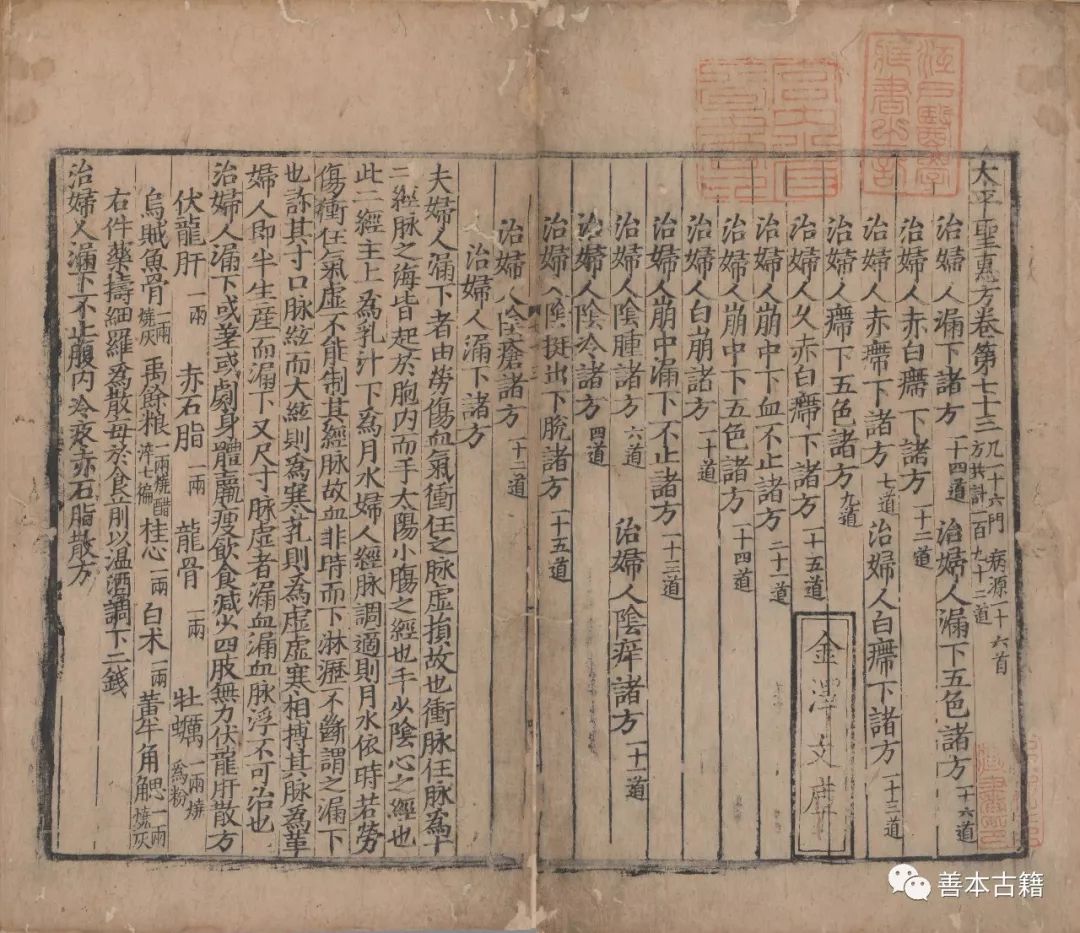 太平聖惠方卷第七十三 凡一十六門 病源一十六首 方共計一百九十二道
治婦人漏下諸方 一十四道 治婦人漏下五色諸方 一十六道
治婦人赤白㿃下諸方 一十二道
治婦人赤㿃下諸方 七道 治婦人白㿃下諸方 一十三道
治婦人㿃下五色諸方 九道
治婦人久赤白㿃下諸方 一十五道
治婦人崩中下血不止諸方 二十一道
治婦人崩中下五色諸方 一十四道
治婦人白崩諸方 一十道
治婦人崩中漏下不止諸方 一十三道
治婦人陰腫諸方 六道 治婦人陰痒諸方 一十一道
治婦人陰冷諸方 四道
治婦人陰挺出下脫諸方 一十五道
治婦人陰瘡諸方 一十二道
治婦人漏下諸方
夫婦人漏下者由勞傷血氣衝任之脉虛損故也衝脉任脉為十
二經脉之海皆起於胞內而手太陽小腸之經也手少陰心之經也
此二經主上為乳汁下為月水婦人經脉調適則月水依時若勞
傷衝任氣虛不能制其經脉故血非時而下淋瀝不斷謂之漏下
也診其寸口脉弦而大弦則為寒乳則為虛虛寒相搏其脉為革
婦人即半生産而漏下又尺寸脉虛者漏血漏血脉浮不可治也
治婦人漏下或差或劇身體羸瘦飲食減少四肢無力伏龍肝散方
伏龍肝 一兩 赤石脂 一兩 龍骨 一兩 牡蠣 一兩燒為粉
烏賊魚骨 一兩燒灰 禹餘粮 一兩燒醋淬七徧 桂心 一兩 白术 一兩 黃牛角䚡 一兩燒灰
右件藥擣細羅為散每於食前以温酒調下二錢
治婦人漏下不止腹內冷疼赤石脂散方
金澤文庫
江戶醫學藏書之記
善本古籍